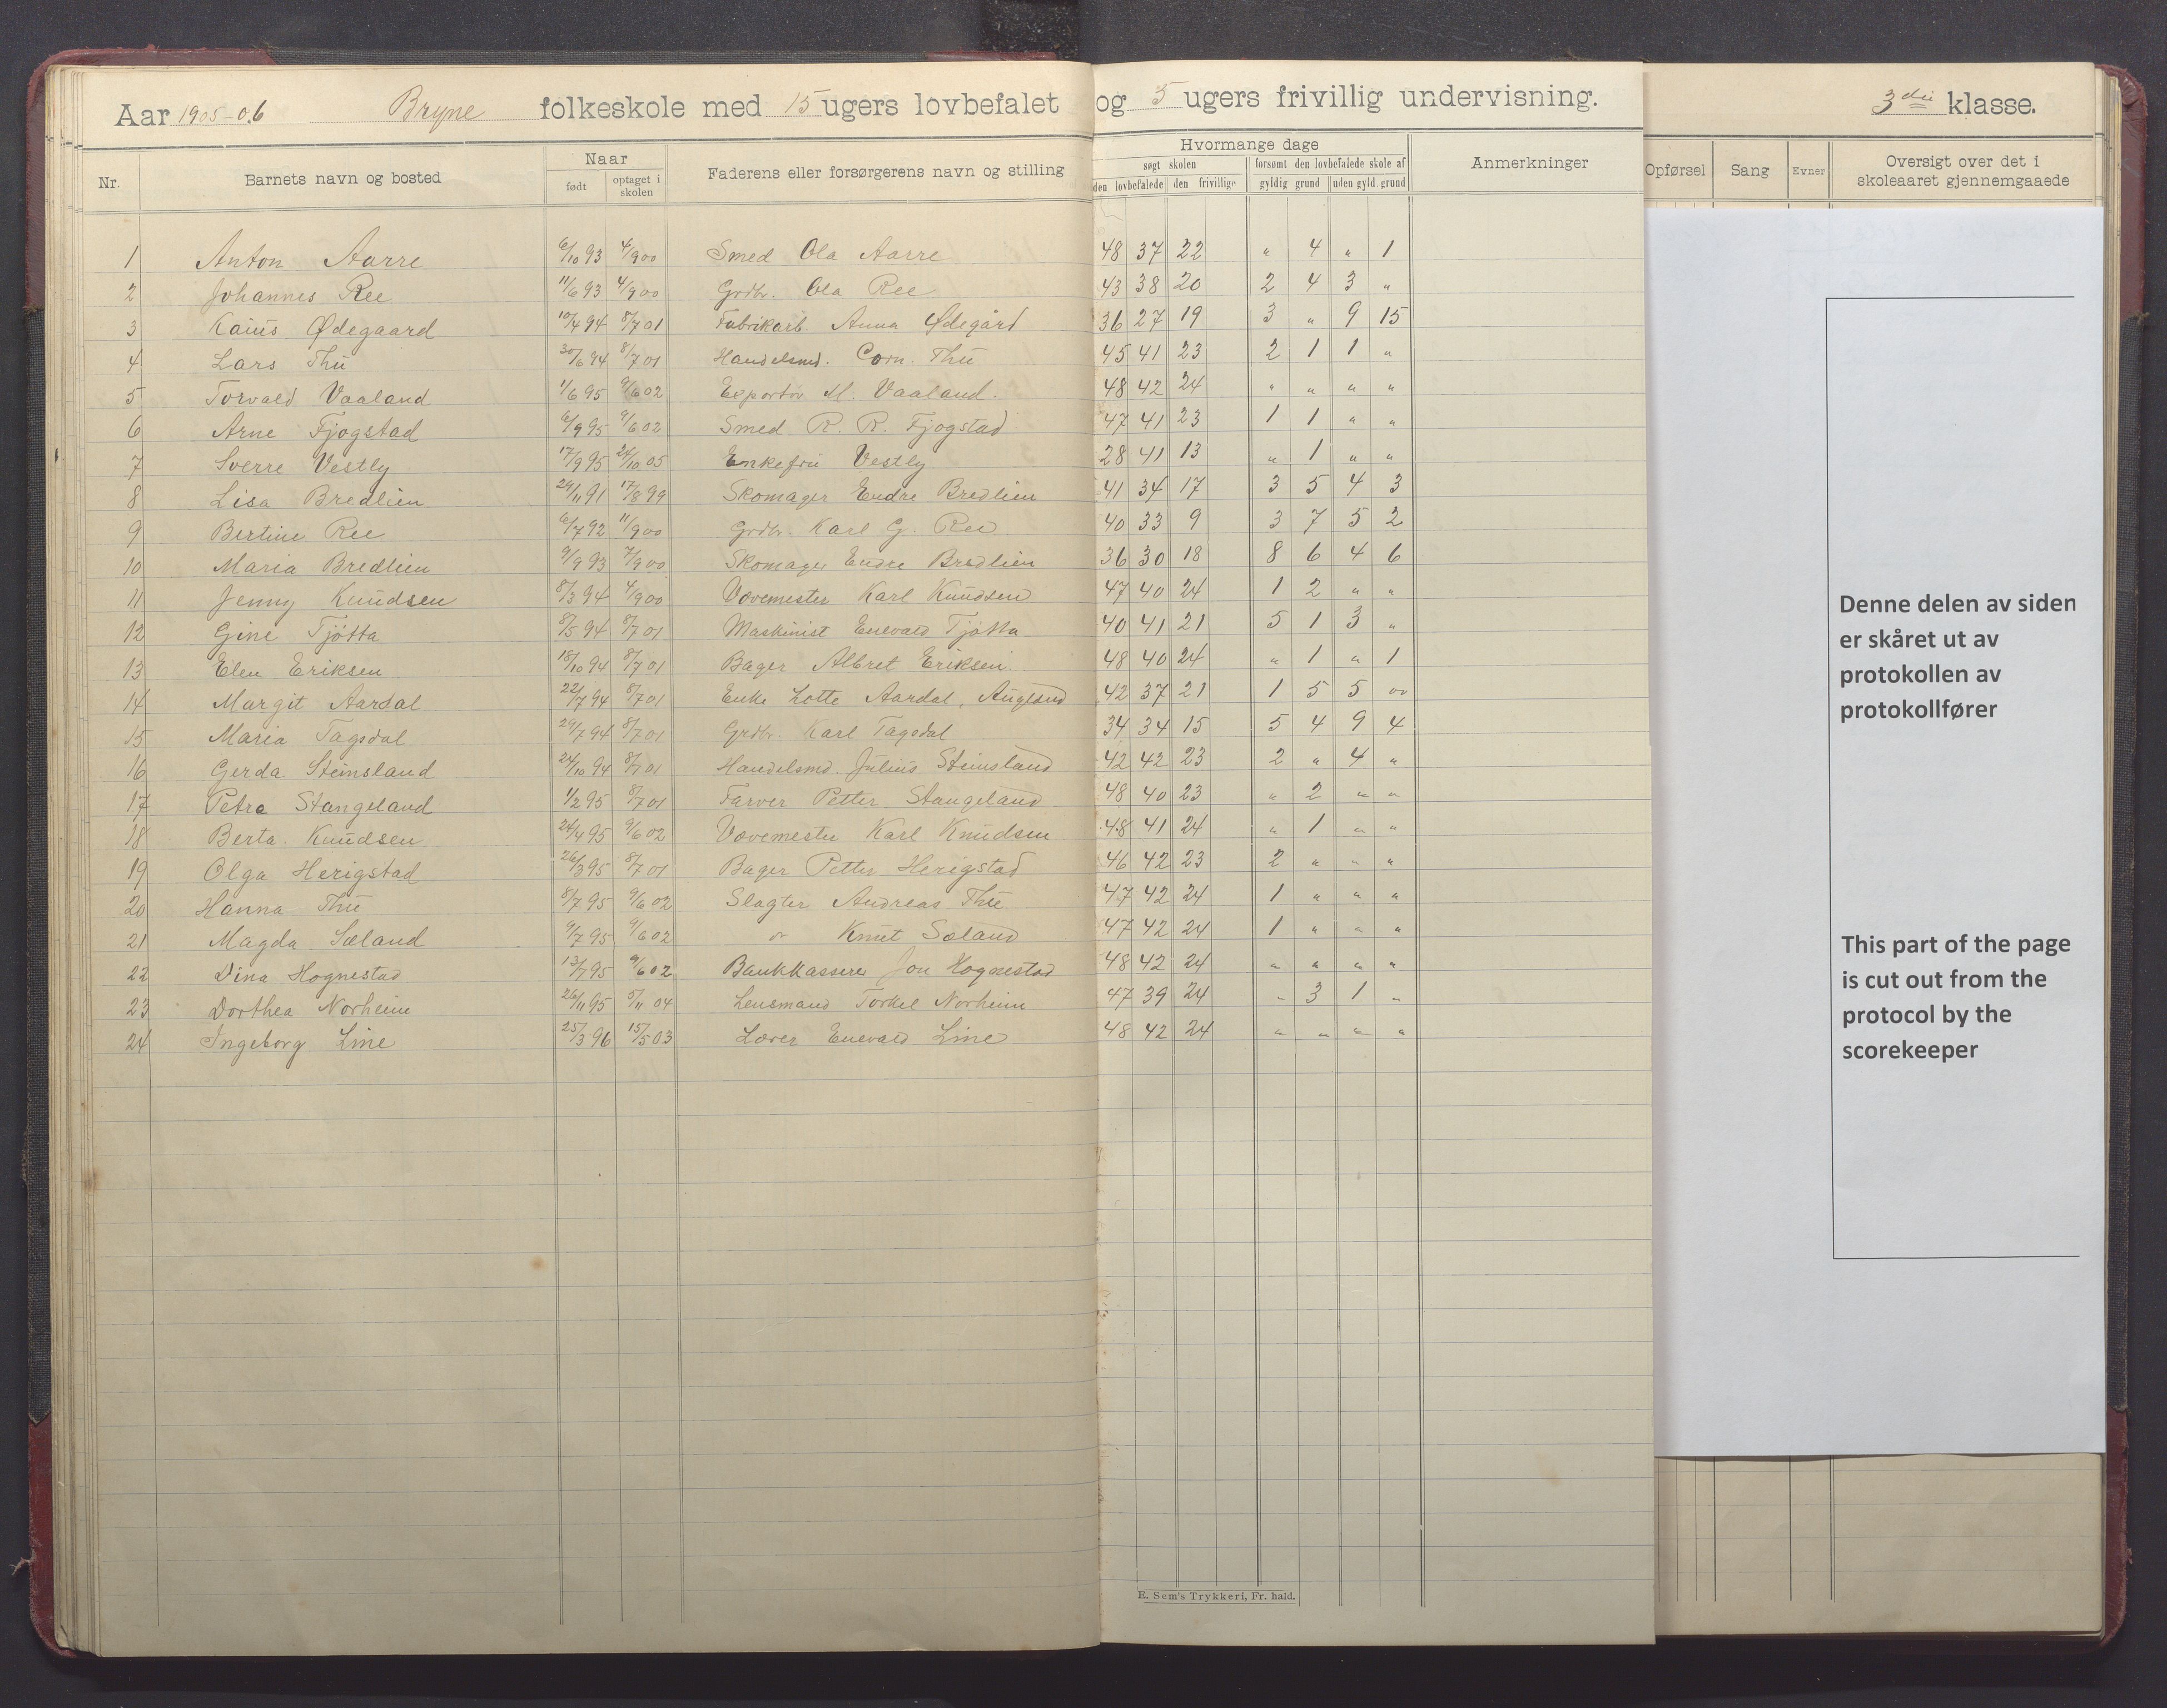 Aar 1905-06 Bryne folkeskole med 15 ugers lovbefalet og 5 ugers frivillig undervisning. 3die klasse.
Nr. Barnets navn og bosted Naar født optaget i skolen Faderens eller forsørgerens navn og stilling Hvormange dage søgt skolen den lovbefalede den frivillige forsømt den lovbefalede skole af gyldig grund uden gyld. grund Anmerkninger Opførsel Sang Evner Oversigt over det i skoleaaret gjennemgaaede
1 Anton Aarre 6/10 93 4/9 00 Smed Ola Aarre 48 37 22 " 4 " 1
2 Johannes Ree 11/6 93 4/9 00 Grdbr. Ola Ree 43 38 20 2 4 3 "
3 Kaius Ødegaard 10/4 94 8/7 01 Fabrikarb. Anna Ødegård 36 27 19 3 " 9 15
4 Lars Thu 30/6 94 8/7 01 Handelsmd. Corn. Thu 45 41 23 2 1 1 "
5 Torvald Vaaland 1/6 95 9/6 02 Exportør M. Vaaland. 48 42 24 " " " "
6 Arne Fjogstad 6/9 95 9/6 02 Smed R. R. Fjogstad 47 41 23 1 1 " "
7 Sverre Vestly 17/9 95 24/10 05 Enkefru Vestly 28 41 13 " 1 " "
8 Lisa Bredlien 29/11 91 17/8 99 Skomager Endre Bredlien 41 34 17 3 5 4 3
9 Bertine Ree 6/7 92 11/9 00 Grdbr. Karl G. Ree 40 33 9 3 7 5 2
10 Maria Bredlien 9/9 93 7/9 00 Skomager Endre Bredlien 36 30 18 8 6 4 6
11 Jenny Knudsen 8/3 94 4/9 00 Vævemester Karl Knudsen 47 40 24 1 2 " "
12 Gine Tjötta 8/5 94 8/7 01 Maskinist Enevald Tjötta 40 41 21 5 1 3 "
13 Elen Eriksen 18/10 94 8/7 01 Bager Albret Eriksen 48 40 24 " 1 " 1
14 Margit Aardal 22/7 94 8/7 01 Enke Lotte Aardal, Auglend 42 37 21 1 5 5 "
15 Maria Tagsdal 29/7 94 8/7 01 Grdbr. Karl Tagsdal 34 34 15 5 4 9 4
16 Gerda Steinsland 24/10 94 8/7 01 Handelsmd. Julius Steinsland 42 42 23 2 " 4 "
17 Petra Stangeland 1/2 95 8/7 01 Farver Petter Stangeland 48 40 23 " 2 " "
18 Berta Knudsen 24/4 95 9/6 02 Vævemester Karl Knudsen 48 41 24 " 1 " "
19 Olga Herigstad 26/3 95 8/7 01 Bager Petter Herigstad 46 42 23 2 " " "
20 Hanna Thu 8/7 95 9/6 02 Slagter Andreas Thu 47 42 24 1 " " "
21 Magda Sæland 9/7 95 9/6 02 " Knut Sæland 47 42 24 1 " " "
22 Dina Hognestad 13/7 95 9/6 02 Bankkasserer Jon Hognestad 48 42 24 " " " "
23 Dorthea Norheim 26/11 95 5/11 04 Lensmand Torkel Norheim 47 39 24 " 3 1 "
24 Ingeborg Line 25/3 96 15/5 03 Lærer Enevald Line 48 42 24 " " " "
E. Sem's Trykkeri, Fr. hald.
Denne delen av siden
er skåret ut av
protokollen av
protokollfører
This part of the page
is cut out from the
protocol by the
scorekeeper